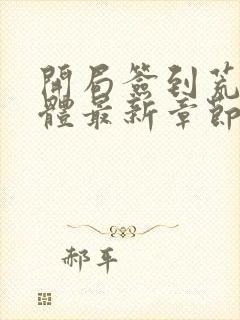 開局簽到荒
體最新章節
郝平